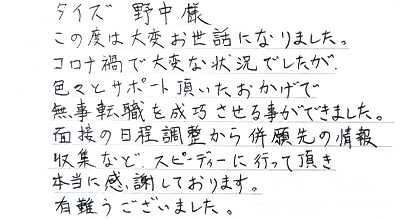 タイズ 野中様
この度は大変お世話になりました。
コロナ禍で大変な状況でしたが、
色々とサポート頂いたおかげで
無事転職を成功させる事ができました。
面接の日程調整から併願先の情報
収集など、スピーディーに行って頂き
本当に感謝しております。
有難うございました。